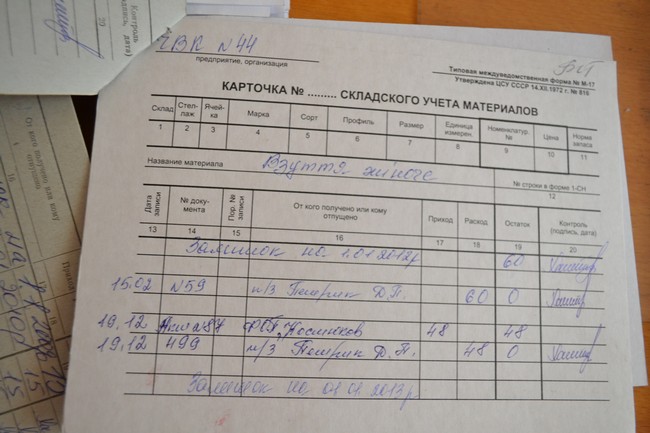 ЧВК №44
предприятие, организация
Типовая междуведомственная форма № М-17
Утверждена ЦСУ СССР 14.XII.1972 г. № 816
КАРТОЧКА № ......... СКЛАДСКОГО УЧЕТА МАТЕРИАЛОВ
Склад Стеллаж Ячейка Марка Сорт Профиль Размер Единица измерен. Номенклатур. № Цена Норма запаса
1 2 3 4 5 6 7 8 9 10 11
Название материала Взуття жіноче
№ строки в форме 1-СН
12
Дата записи № документа Пор. № записи От кого получено или кому отпущено Приход Расход Остаток Контроль (подпись, дата)
13 14 15 16 17 18 19 20
Залишок на 1.01.2012р 60
15.02 №59 н/з Д.П. 60 0
19.12 Акт №87 ФОП Носинков 48 48
19.12 499 н/з Д.П. 48 0
Залишок на 01.01.2013р
Контроль
дата)
20
От кого получено или кому отпущено